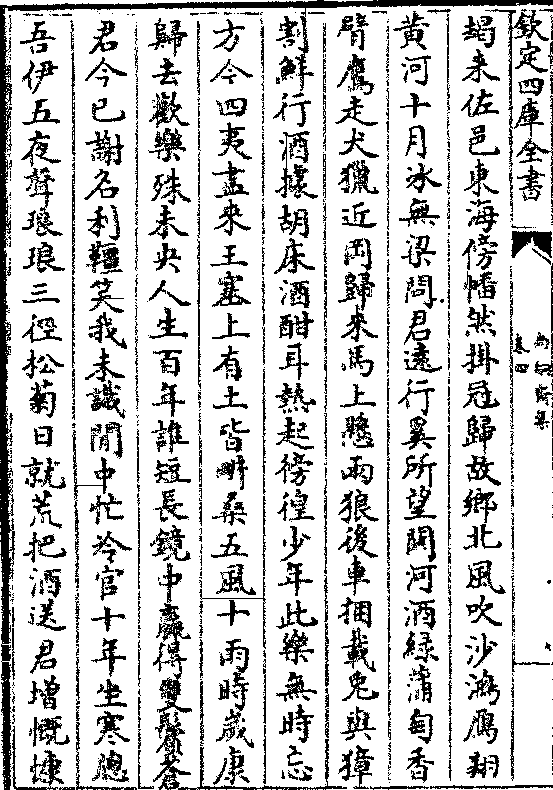 欽定四庫全書
卷四
朅来佐邑東海傍幡然掛冠歸故鄉北風吹沙鴻鴈翔
黄河十月冰無梁問君遠行奚所望開河酒緑蒲萄香
臂鷹走犬獵近岡歸來馬上懸兩狼後車捆載兎與獐
割鮮行酒據胡床酒酣耳熱起徬徨少年此樂無時忘
方今四夷盡來王塞上有土皆畊桑五風十雨時嵗康
歸去歡樂殊未央人生百年誰短長鏡中贏得雙鬢蒼
君今已謝名利韁笑我未識閒中忙冷官十年坐寒牕
吾伊五夜聲琅琅三徑松菊日就荒把酒送君增慨慷